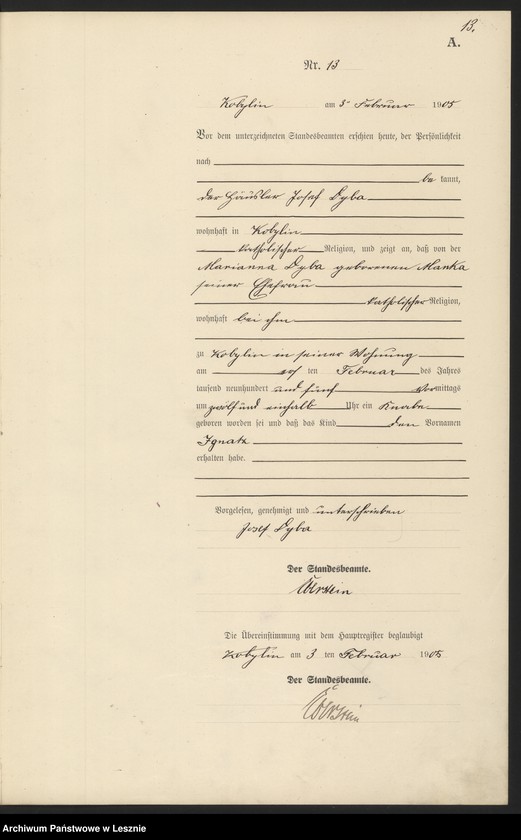 13.
A.
Nr. 13
Kobylin am 3 Februar 1905
Vor dem unterzeichneten Standesbeamten erschien heute, der Persönlichkeit
nach
be kannt,
der Häusler Josef Dyba
wohnhaft in Kobylin
katholischer Religion, und zeigt an, daß von der
Marianna Dyba geborenen Manka
seiner Ehefrau
katholischer Religion,
wohnhaft bei ihm
zu Kobylin in seiner Wohnung
am ten Februar des Jahres
tausend neunhundert und fünf Vormittags
um zwölf und einhalb Uhr ein Knabe
geboren worden sei und daß das Kind den Vornamen
Ignatz
erhalten habe.
Vorgelesen, genehmigt und unterschrieben
Josef Dyba
Der Standesbeamte.
Die Übereinstimmung mit dem Hauptregister beglaubigt
Kobylin am 3 ten Februar 1905
Der Standesbeamte.
Archiwum Państwowe w Lesznie